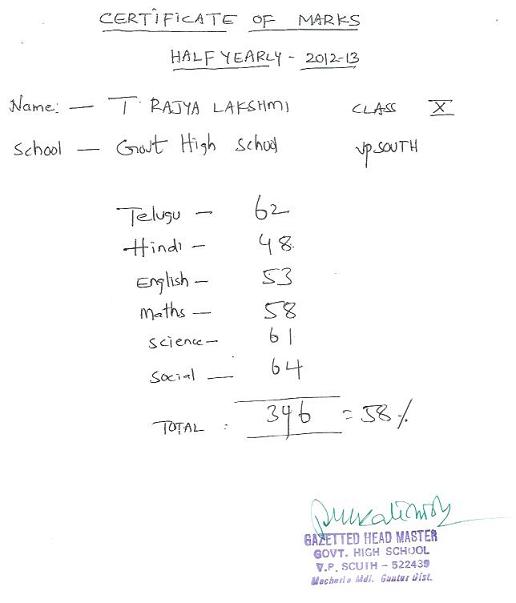 CERTIFICATE OF MARKS
HALF YEARLY - 2012-13
Name: — T RAJYA LAKSHMI CLASS X
School — Govt High School VP SOUTH
Telugu — 62
Hindi — 48
English — 53
Maths — 58
Science — 61
Social — 64
TOTAL : 346 = 58%
GAZETTED HEAD MASTER
GOVT. HIGH SCHOOL
V.P. SOUTH - 522439
Macherla Mdl. Guntur Dist.